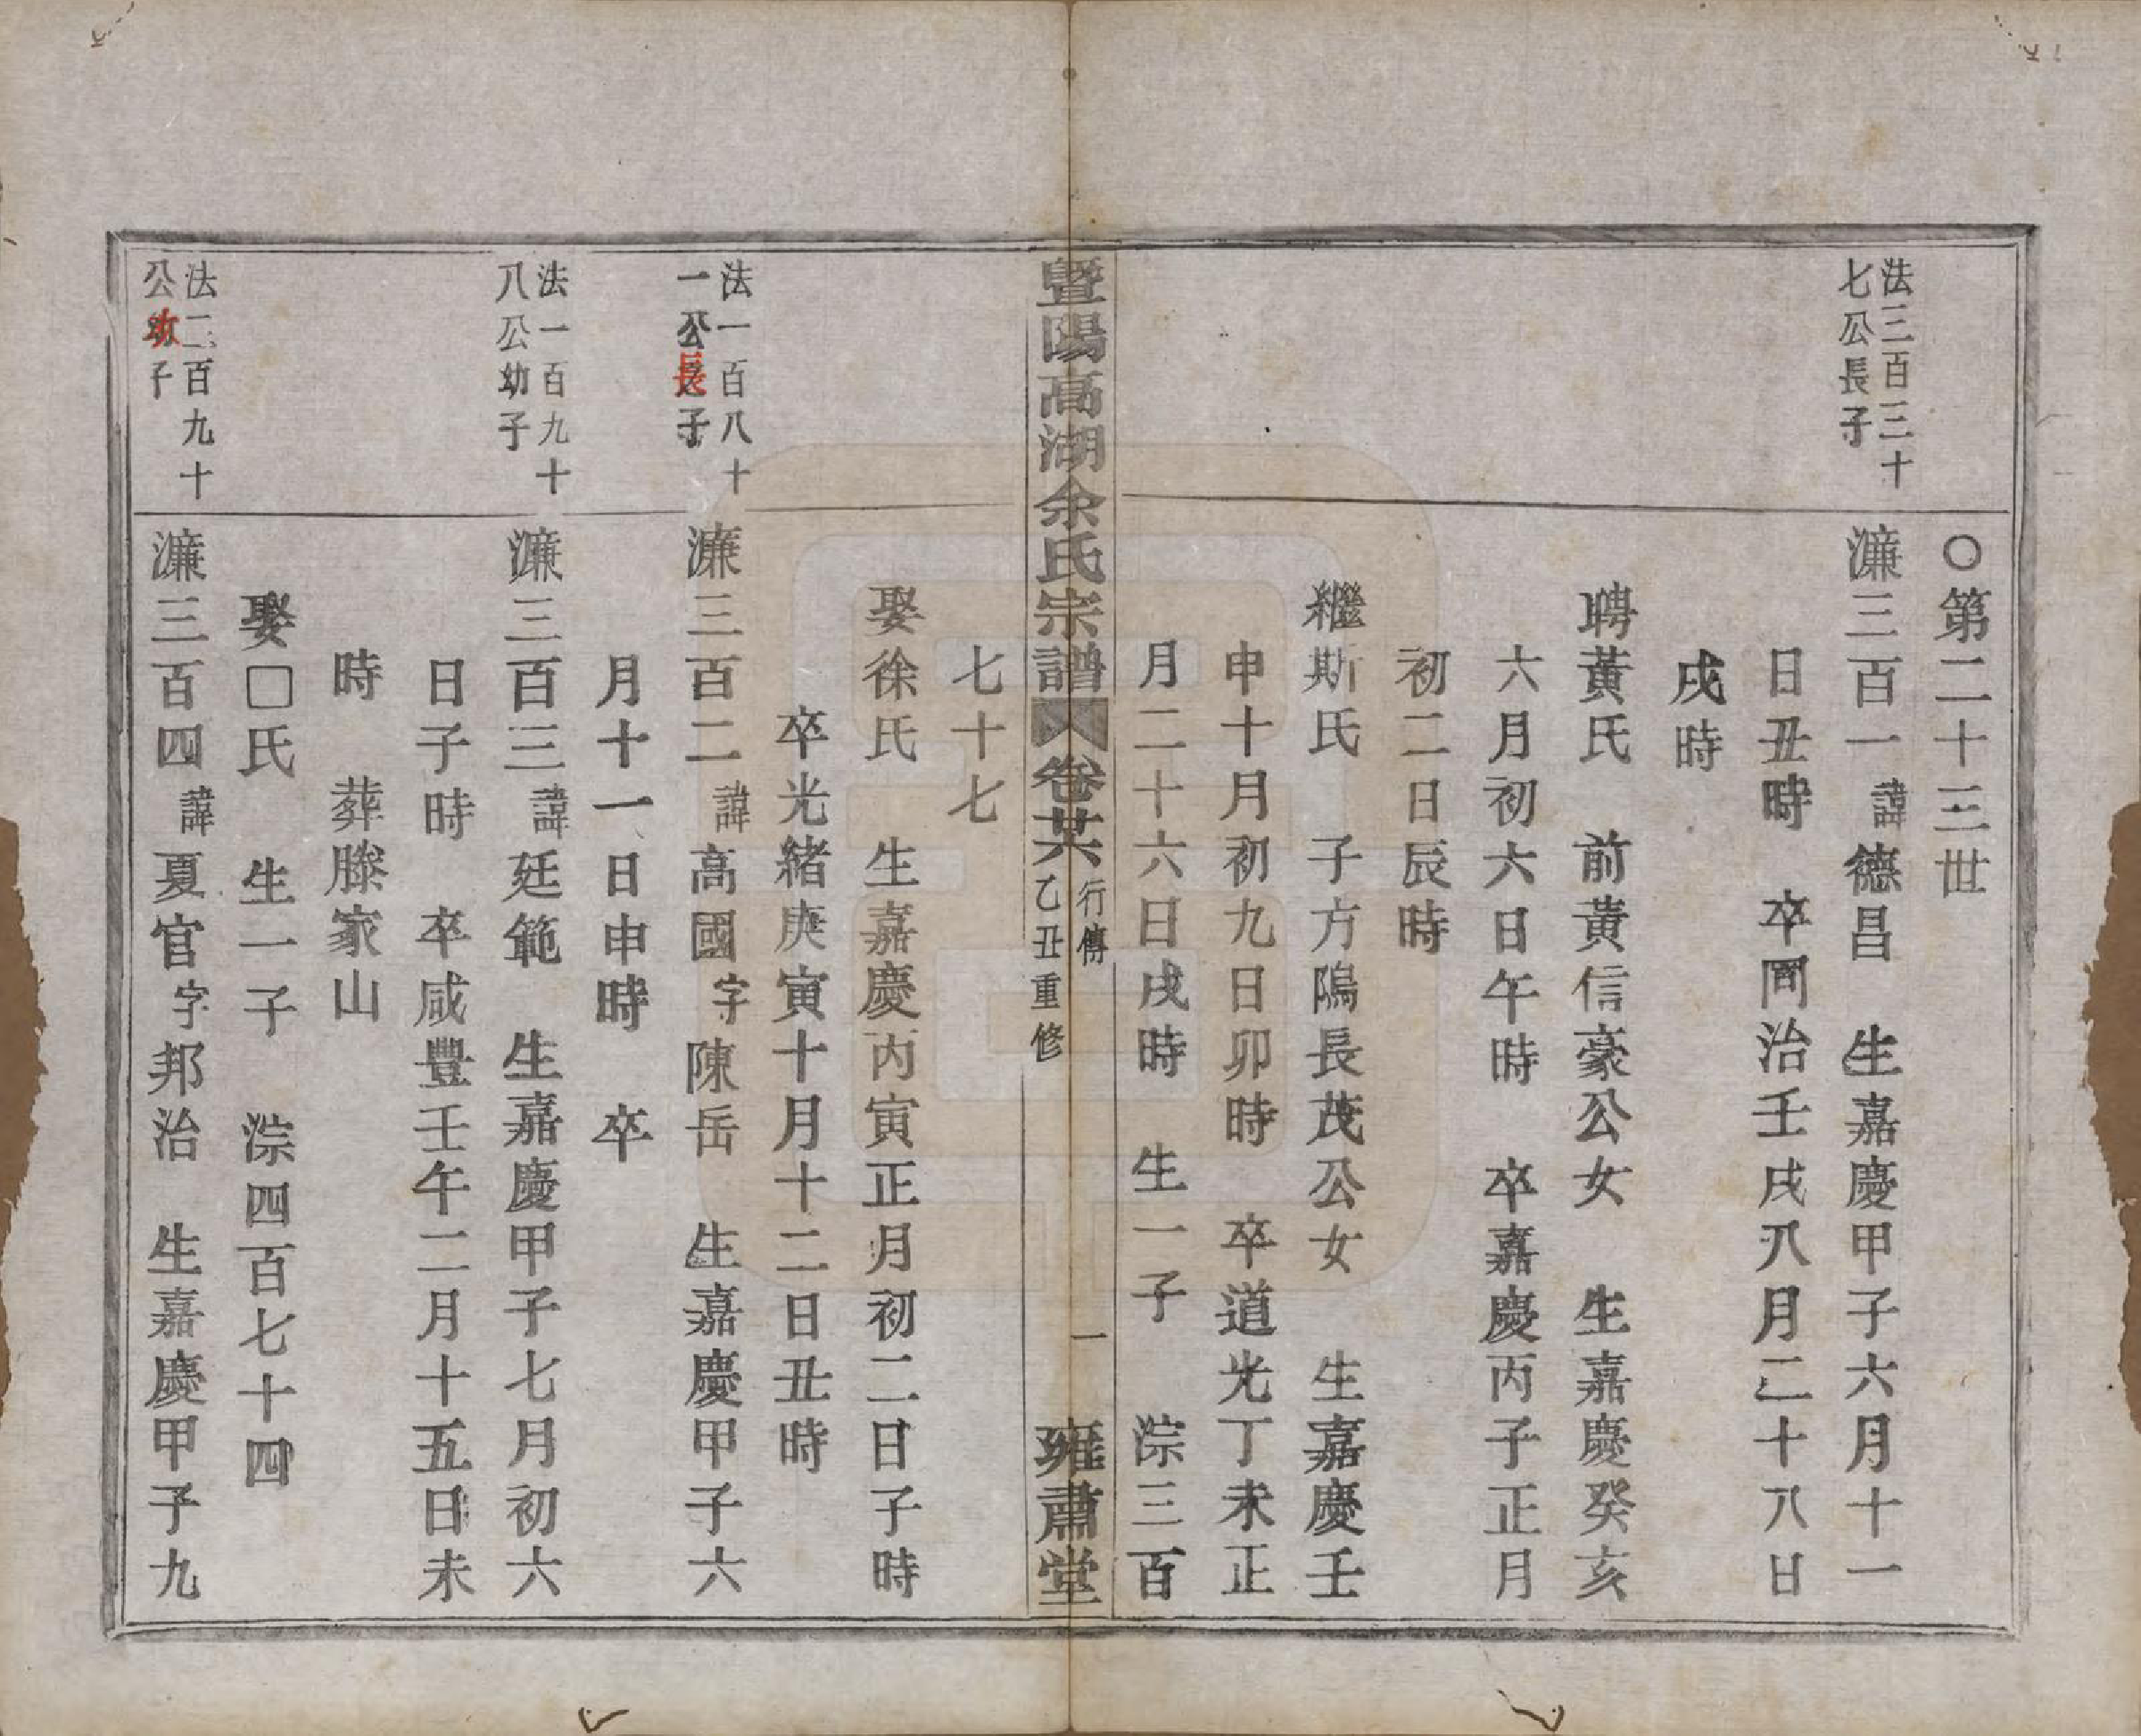 〇第二十三世
法三百三十
七公長子
濂三百一諱德昌　生嘉慶甲子六月十一
日丑時　卒同治壬戌八月二十八日
戌時
聘黃氏　前黃信豪公女　生嘉慶癸亥
六月初六日午時　卒嘉慶丙子正月
初二日辰時
繼斯氏　子方隖長茂公女　生嘉慶壬
申十月初九日卯時　卒道光丁未正
月二十六日戌時　生一子　淙三百
暨陽高湖余氏宗譜　卷廿六　行傳　乙丑重修　一　雍肅堂
七十七
娶徐氏　生嘉慶丙寅正月初二日子時
卒光緒庚寅十月十二日丑時
法一百八十
一公長子
濂三百二諱高國字陳岳　生嘉慶甲子六
月十一日申時　卒
法一百九十
八公幼子
濂三百三諱廷範　生嘉慶甲子七月初六
日子時　卒咸豐壬午二月十五日未
時　葬滕家山
娶□氏　生一子　淙四百七十四
法二百九十
公次子
濂三百四諱夏官字邦治　生嘉慶甲子九